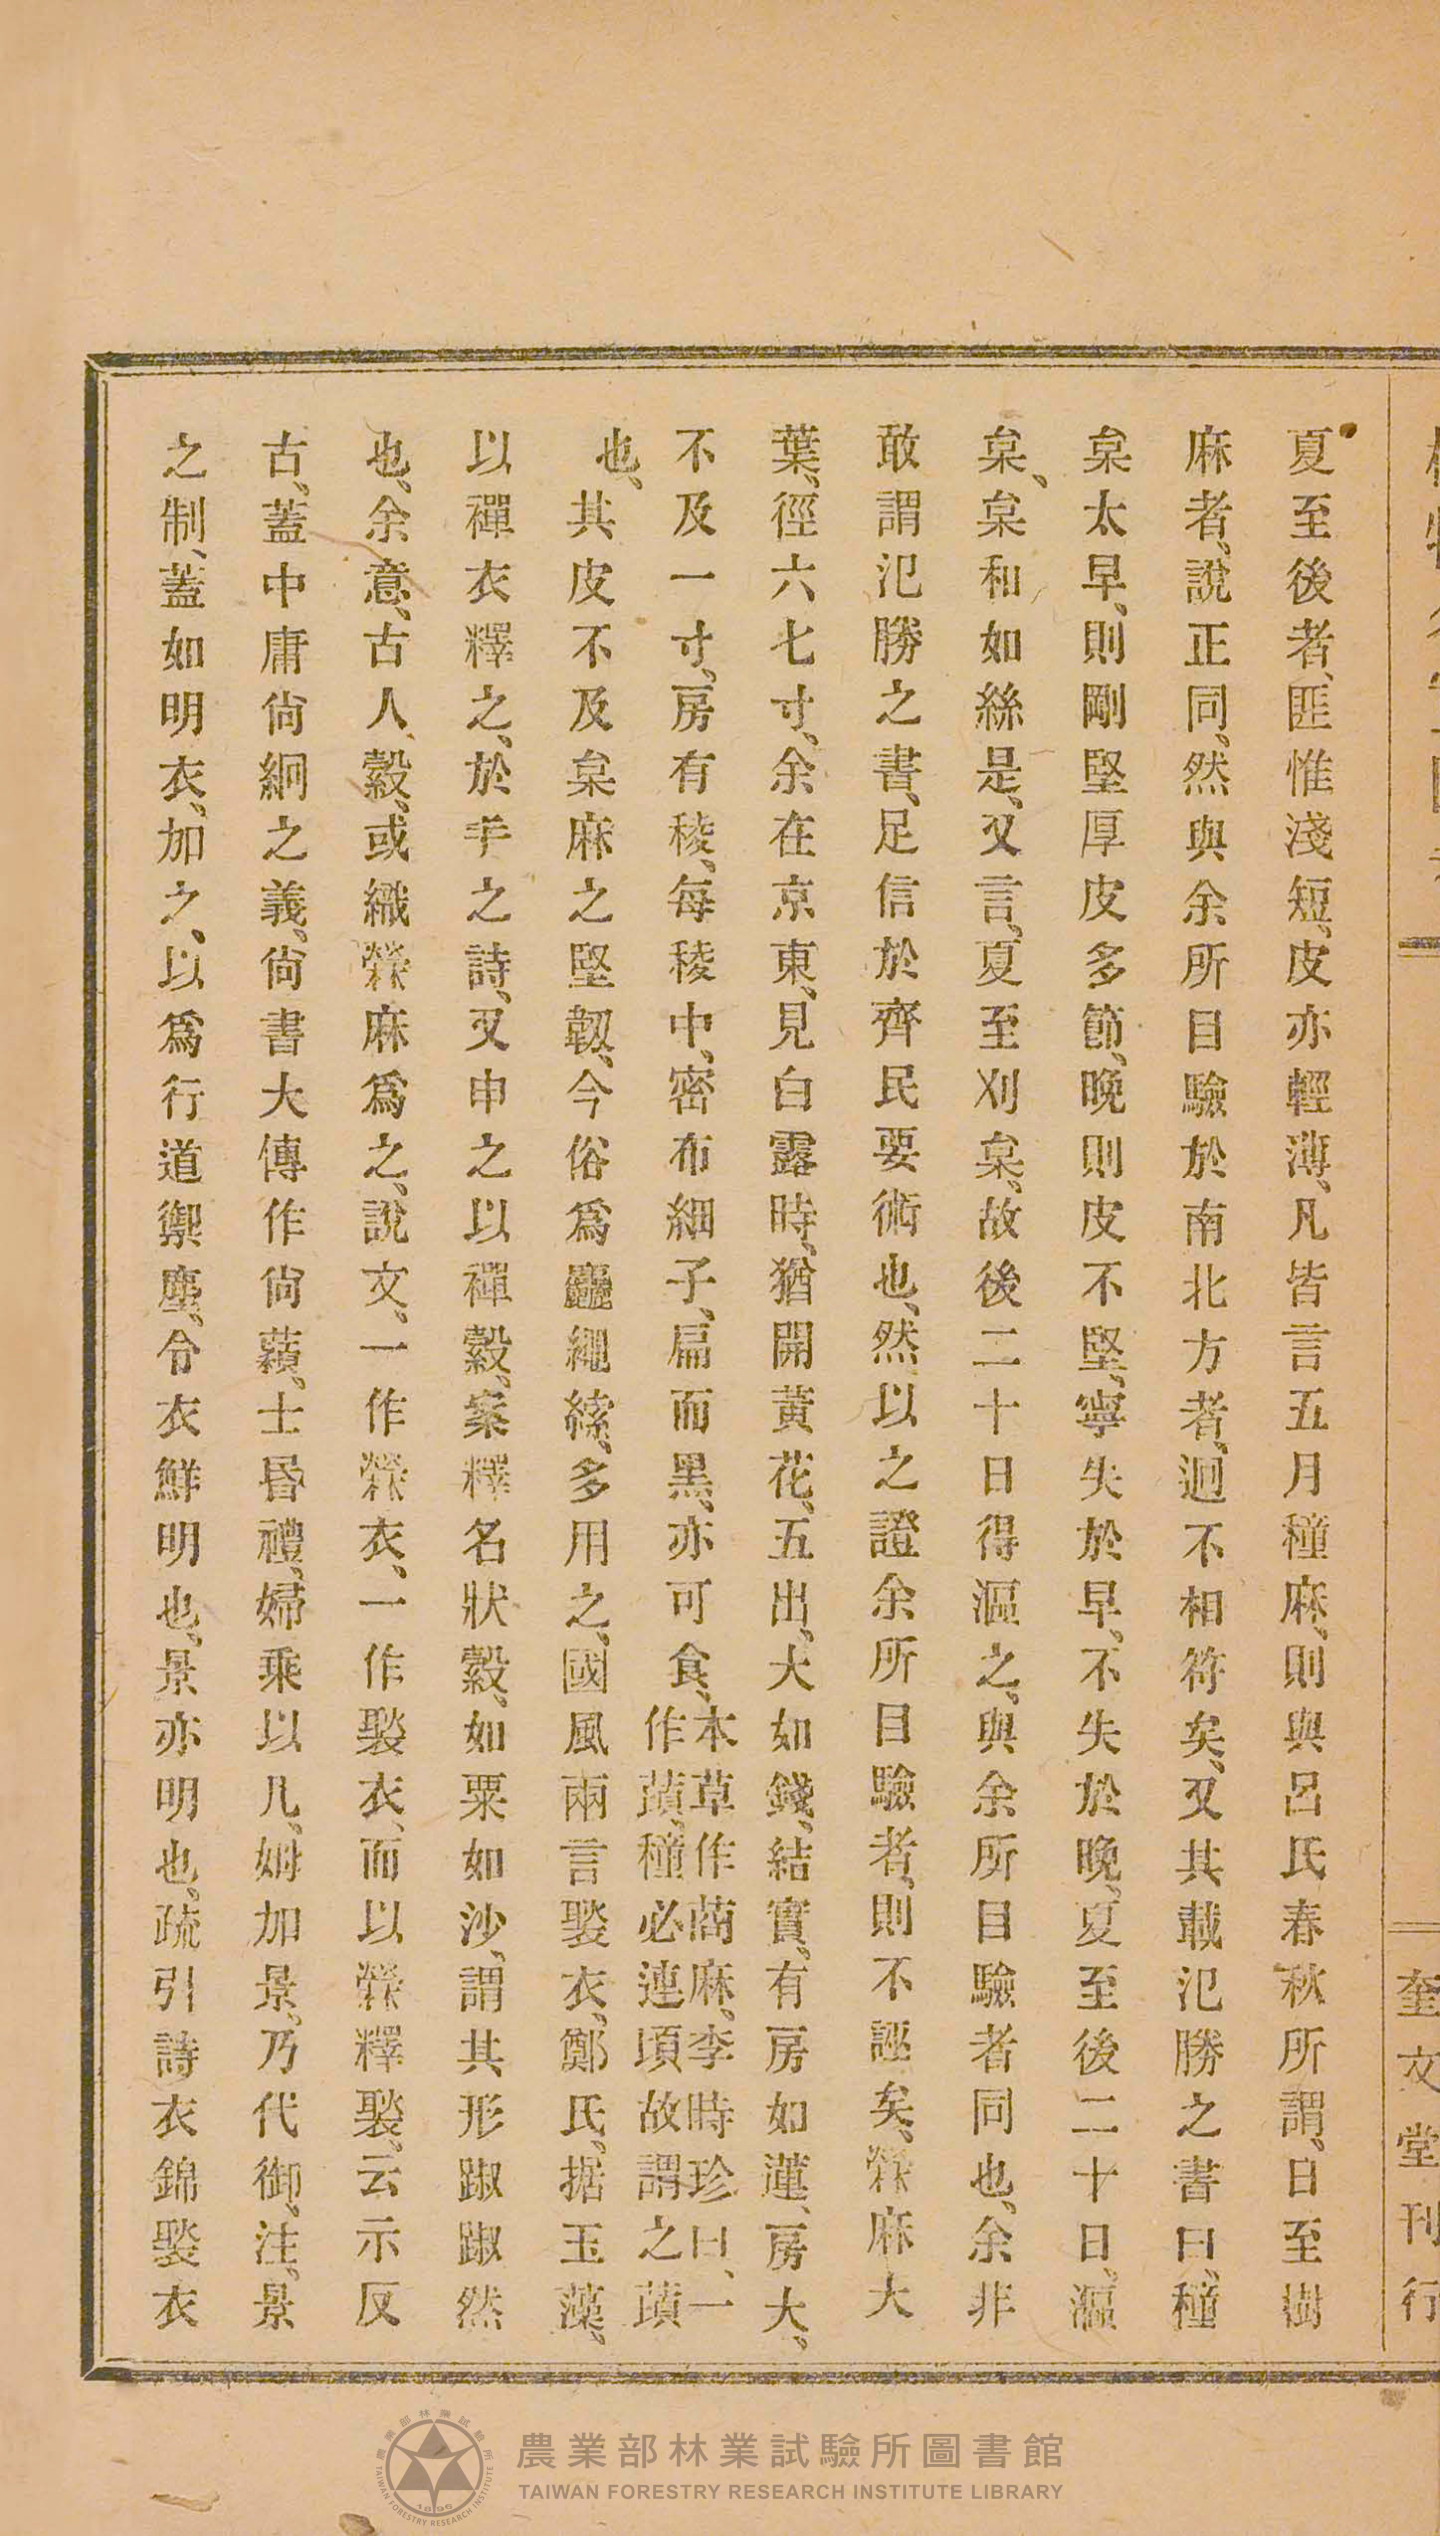 奎文堂刊行
夏至後者、匪惟淺短、皮亦輕薄、凡皆言五月種麻、則與呂氏春秋所謂、日至樹
麻者、說正同、然與余所目驗於南北方者、迥不相符矣、又其載氾勝之書曰、種
枲太早、則剛堅厚皮多節、晚則皮不堅、寧失於早、不失於晚、夏至後二十日、漚
枲、枲和如絲是、又言、夏至刈枲、故後二十日得漚之、與余所目驗者同也、余非
敢謂氾勝之書、足信於齊民要術也、然以之證余所目驗者、則不誣矣、檾麻大
葉、徑六七寸、余在京東、見白露時、猶開黃花、五出、大如錢、結實、有房如蓮、房大、
不及一寸、房有稜、每稜中、密布細子、扁而黑、亦可食、本草作䔛麻、李時珍曰、一作䔛、種必連頃故謂之䔛
也、其皮不及枲麻之堅韌、今俗爲麤繩索、多用之、國風兩言褧衣、鄭氏、据玉藻、
以禪衣釋之、於丰之詩、又申之以禪縠、案釋名狀縠、如粟如沙、謂其形踧踧然
也、余意、古人縠、或織檾麻爲之、說文、一作檾衣、一作褧衣、而以檾釋褧、云示反
古、蓋中庸尙絅之義、尙書大傳作尙蘏、士昏禮、婦乘以几、姆加景、乃代御、注、景
之制、蓋如明衣、加之、以爲行道禦塵、令衣鮮明也、景亦明也、疏引詩衣錦褧衣
農業部林業試驗所圖書館
TAIWAN FORESTRY RESEARCH INSTITUTE LIBRARY